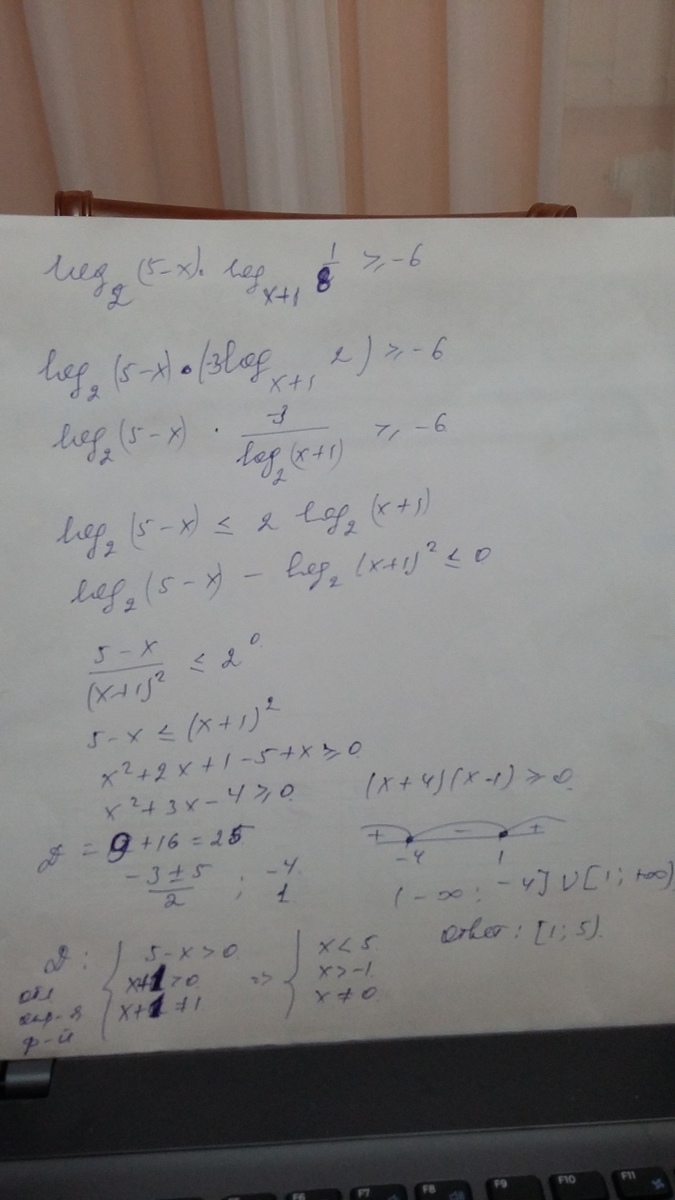 log₂(5-x)·log_{x+1} 1/8 ≥ -6
log₂(5-x)•(-3log_{x+1} 2) ≥ -6
log₂(5-x) · -3/log₂(x+1) ≥ -6
log₂(5-x) ≤ 2 log₂(x+1)
log₂(5-x) - log₂(x+1)² ≤ 0
(5-x)/(x+1)² ≤ 2⁰
5-x ≤ (x+1)²
x²+2x+1-5+x ≥ 0
x²+3x-4 ≥ 0
D = 9+16=25
(-3±5)/2 ; -4
1
(x+4)(x-1) ≥ 0
+ - +
-4 1
(-∞; -4] ∪ [1; +∞)
Ответ: [1; 5).
D: { 5-x>0 => { x<5
обл x+1>0 x>-1
опр-я x+1≠1 x≠0
ф-й
F6 F7 F8 F9 F10 F11